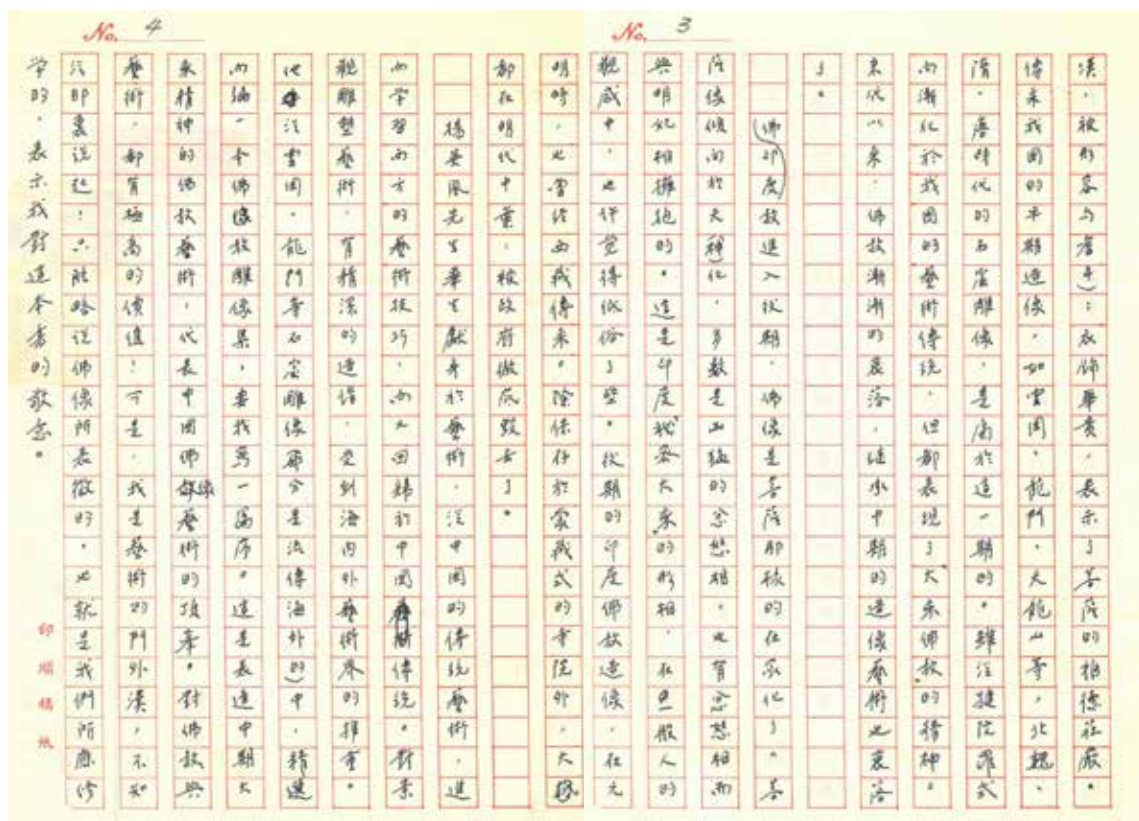 No. 3
漢,被形容為唐手):衣飾華貴,表示了菩薩的相德莊嚴。
傳來我國的早期造像,如雲岡、龍門、天龍山等,北魏、
隋、唐時代的石窟雕像,是屬於這一期的。雖從犍陀羅式
而漸化於我國的藝術傳統,但都表現了大乘佛教的精神。
宋代以來,佛教漸漸的衰落,繼承中期的造像藝術也衰落
了。
印度佛教進入後期,佛像是菩薩那樣的在家化了。菩
薩像傾向於天神化,多數是凶猛的忿怒相。也有忿怒相而
與明妃相擁抱的。這是印度秘密大乘的形相,在一般人的
觀感中,也許覺得低俗了些。後期的印度佛教造像,在元
明時,也曾從西藏傳來。除保存於蒙藏式的寺院外,大概
都在明代中葉,被政府徹底毀去了。
No. 4
楊英風先生畢生獻身於藝術,從中國的傳統藝術,進
而學習西方的藝術技巧,而又回歸於中國藝術傳統。對景
觀雕塑藝術,有精深的造詣,受到海內外藝術界的推重。
他從雲岡、龍門等石窟雕像(部分是流傳海外的)中,精選
而編一本佛教雕像集,要我寫一篇序。這是表達中期大
乘精神的佛教藝術,代表中國佛像藝術的頂峯。對佛教與
藝術,都有極高的價值!可是,我是藝術的門外漢,不知
從那裏說起!只能略說佛像所表徵的,也就是我們所應修
學的,表示我對這本書的敬意。
印順稿紙